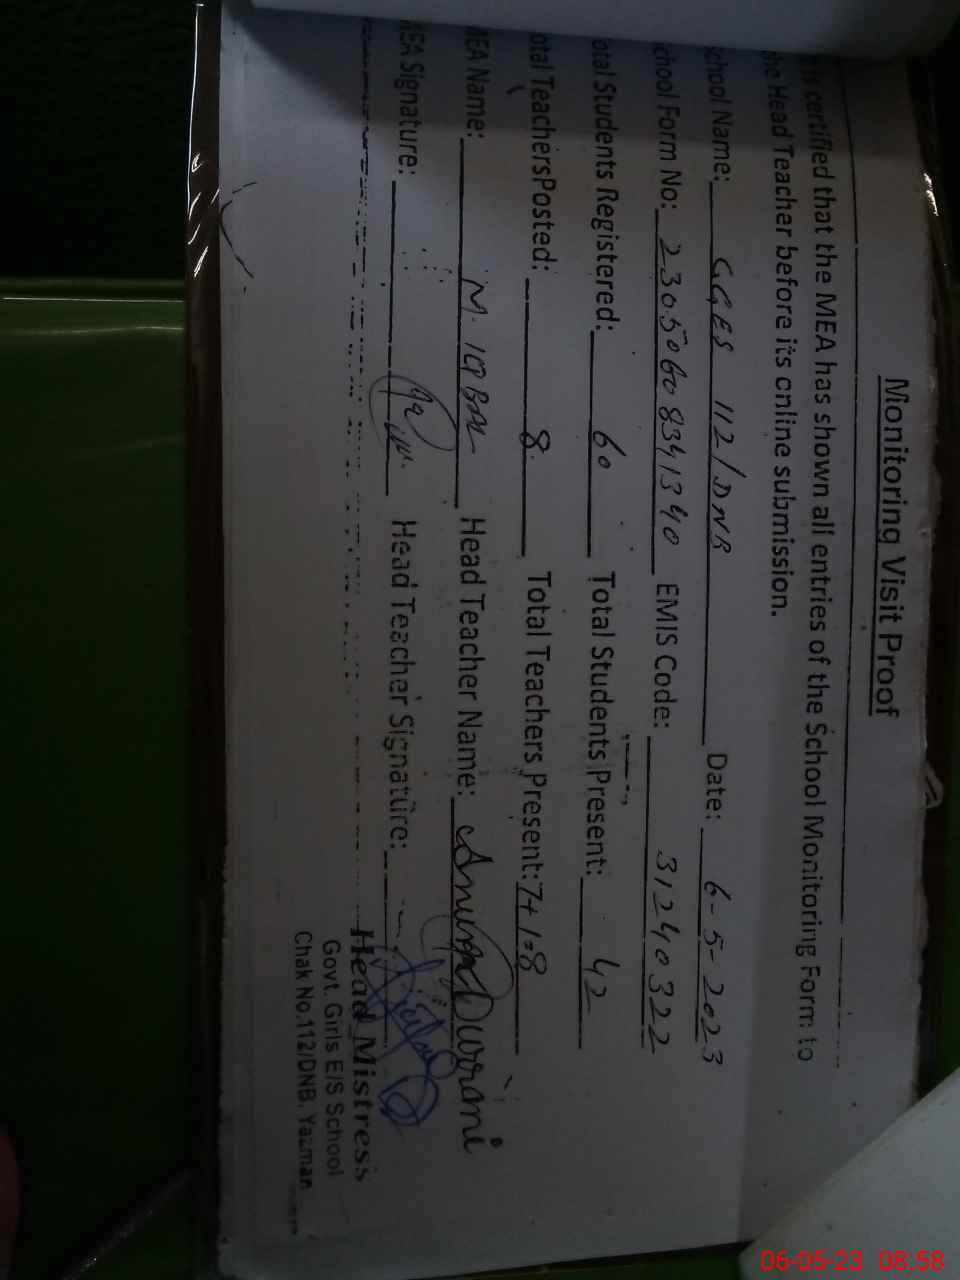 Monitoring Visit Proof
is certified that the MEA has shown all entries of the School Monitoring Form to
he Head Teacher before its online submission.
chool Name: GGES 112/DNB Date: 6-5-2023
chool Form No: 23050608341340 EMIS Code: 31240322
otal Students Registered: 60 Total Students Present: 42
otal TeachersPosted: 8 Total Teachers Present: 7+1=8
MEA Name: M. IQBAL Head Teacher Name: Durrani
MEA Signature: Head Teacher Signature:
Head Mistress
Govt. Girls E/S School
Chak No.112/DNB. Yazman
06-05-23 08:58